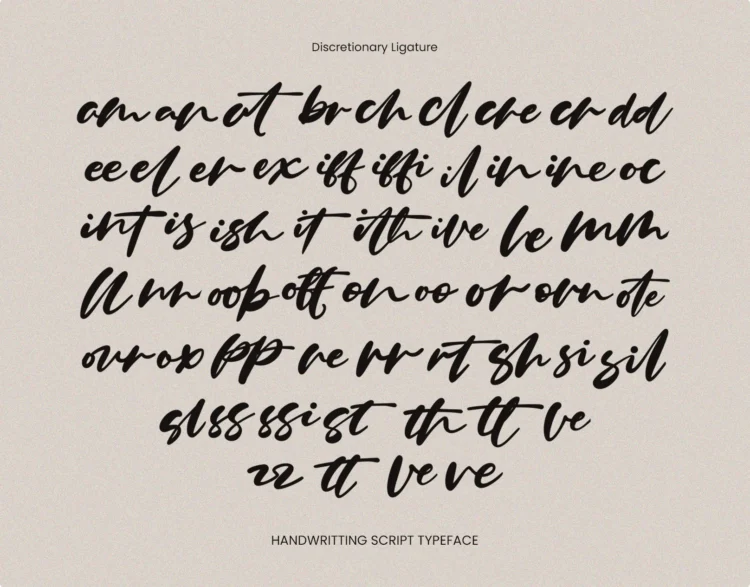 Discretionary Ligature
am an at br ch cl cre cr dd
ee el er ex iff iffi il in ine oc
int is ish it ith ive le mm
ll nn oo ob off on oo or orn ote
our ox pp re rr rt sh si sil
sl ss ssi st th tt ve
zz tt ve ve
HANDWRITTING SCRIPT TYPEFACE